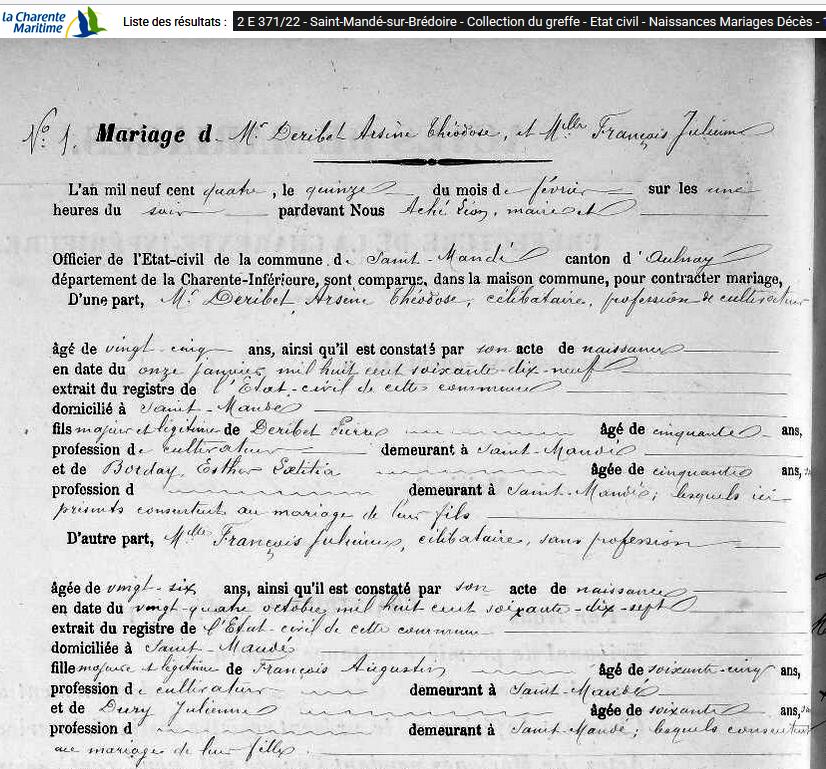 la Charente
Maritime
Liste des résultats :
2 E 371/22 - Saint-Mandé-sur-Brédoire - Collection du greffe - Etat civil - Naissances Mariages Décès - 1
N° 1. Mariage d Mr Deribet Arsène Théodose, et Melle François Julienne
L'an mil neuf cent quatre, le quinze du mois de février sur les une
heures du soir pardevant Nous Aché Léon, maire et
Officier de l'Etat-civil de la commune de Saint-Mandé canton d'Aulnay
département de la Charente-Inférieure, sont comparus, dans la maison commune, pour contracter mariage,
D'une part, Mr Deribet Arsène Théodose, célibataire, profession de cultivateur
âgé de vingt-cinq ans, ainsi qu'il est constaté par son acte de naissance
en date du onze janvier mil huit cent soixante-dix-neuf
extrait du registre de l'Etat-civil de cette commune
domicilié à Saint-Mandé
fils majeur et légitime de Deribet Pierre âgé de cinquante ans,
profession de cultivateur demeurant à Saint-Mandé
et de Borday, Esther Lætitia âgée de cinquante ans,
profession d demeurant à Saint-Mandé; lesquels ici
présents consentent au mariage de leur fils
D'autre part, Melle François Julienne, célibataire, sans profession
âgée de vingt-six ans, ainsi qu'il est constaté par son acte de naissance
en date du vingt-quatre octobre mil huit cent soixante-dix-sept
extrait du registre de l'Etat-civil de cette commune
domiciliée à Saint-Mandé
fille majeure et légitime de François Augustin âgé de soixante-cinq ans,
profession de cultivateur demeurant à Saint-Mandé
et de Dury Julienne âgée de soixante ans,
profession d demeurant à Saint-Mandé; lesquels consentent
au mariage de leur fille.